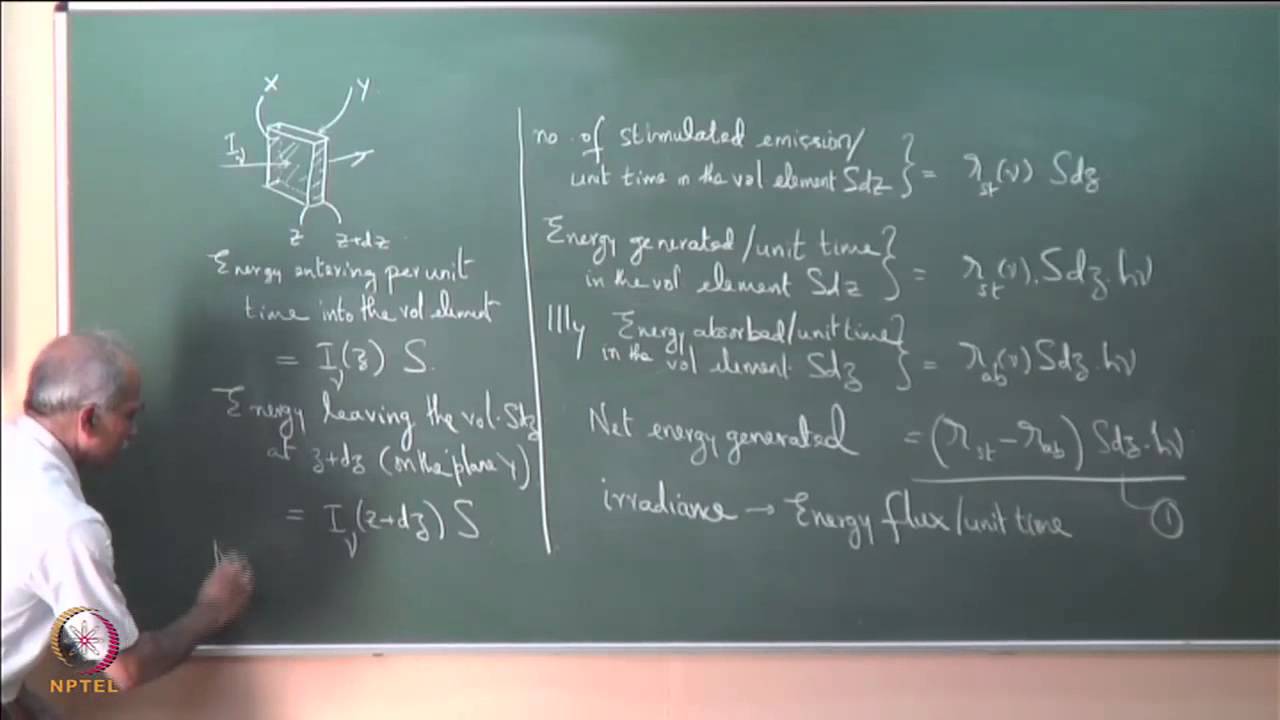 X
Y
I_ν
z
z+dz
Energy entering per unit
time into the vol element
= I_ν(z) S.
Energy leaving the vol. Sdz
at z+dz (on the plane Y)
= I_ν(z+dz) S
no. of stimulated emission/
unit time in the vol element Sdz } = r_st(ν) Sdz
Energy generated/unit time
in the vol element Sdz } = r_st(ν). Sdz. hν
IIIly Energy absorbed/unit time
in the vol element Sdz } = r_ab(ν) Sdz. hν
Net energy generated = (r_st − r_ab) Sdz. hν
irradiance → Energy flux/unit time
1
NPTEL